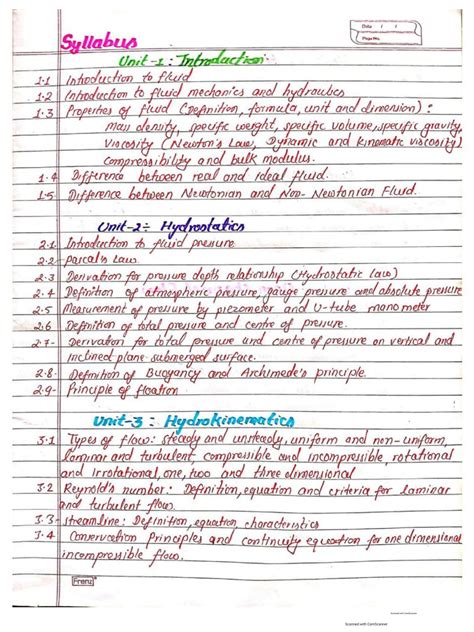 Date / /
Page No.
Syllabus
Unit-1: Introduction
1.1 Introduction to fluid
1.2 Introduction to fluid mechanics and hydraulics
1.3 Properties of fluid (Definition, formula, unit and dimension) :
Mass density, specific weight, specific volume, specific gravity,
Viscosity (Newton's Law, Dynamic and kinematic viscosity)
Compressibility and bulk modulus.
1.4 Difference between real and ideal fluid.
1.5. Difference between Newtonian and Non-Newtonian Fluid.
Unit-2÷ Hydrostatics
2.1 Introduction to fluid pressure
2.2 Pascal's Law
2.3 Derivation for pressure depth relationship (Hydrostatic Law)
2.4 Definition of atmospheric pressure, gauge pressure and absolute pressure
2.5 Measurement of pressure by piezometer and U-tube manometer
2.6 Definition of total pressure and centre of pressure.
2.7- Derivation for total pressure and centre of pressure on vertical and
inclined plane submerged surface.
2.8- Definition of Buoyancy and Archimede's principle.
2.9- Principle of floation
Unit-3: Hydrokinematics
3.1 Types of flow: steady and unsteady, uniform and non-uniform,
laminar and turbulent, compressible and incompressible, rotational
and irrotational, one, two and three dimensional
3.2 Reynold's number: Definition, equation and criteria for laminar
and turbulent flow.
3.3 streamline: Definition, equation characteristics
3.4 Conservation Principles and continuity equation for one dimensional
incompressible flow.
Frenz
Scanned with CamScanner
Scanned with CamScanner